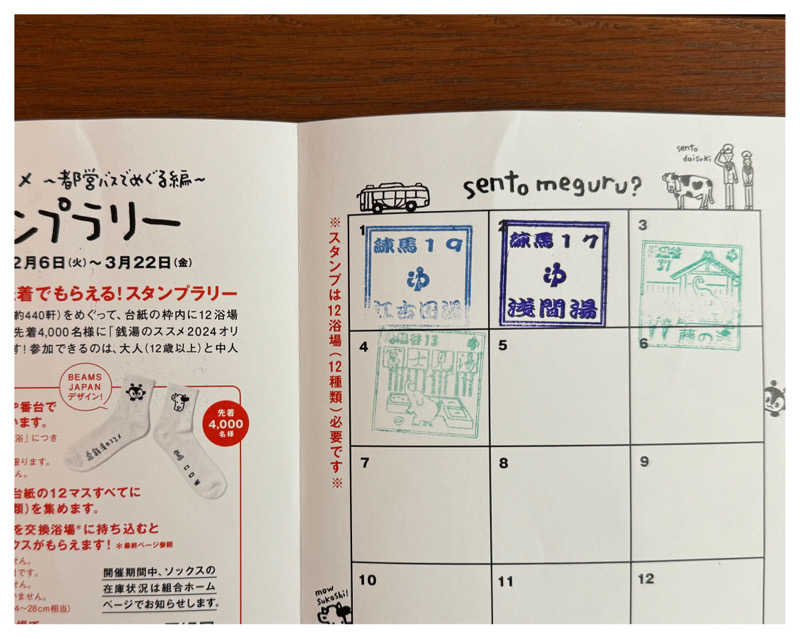 メ 〜都営バスでめぐる編〜
ンプラリー
2月6日(火)〜3月22日(金)
着でもらえる!スタンプラリー
約440軒)をめぐって、台紙の枠内に12浴場
先着4,000名様に「銭湯のススメ2024オリ
す!参加できるのは、大人(12歳以上)と中人
BEAMS
JAPAN
デザイン!
先着
4,000
名様
や番台で
います。
浴」につき
ります。
ん。
台紙の12マスすべてに
類)を集めます。
を交換浴場*に持ち込むと
クスがもらえます!*最終ページ参照
せん。
です。
せん。
いません。
4〜28cm相当)
開催期間中、ソックスの
在庫状況は組合ホーム
ページでお知らせします。
sento meguru?
sento
daisuki
※スタンプは12浴場(12種類)必要です※
1
練馬19
ゆ
江古田湯
2
練馬17
ゆ
浅間湯
3
31
4
13
5
6
7
8
9
10
11
12
mow
sukoshi!